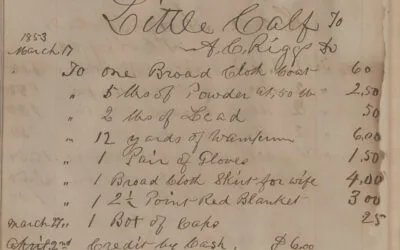 Little Calf To
1853 A. C. Riggs Dr
March 17
" To one Broad Cloth Coat 6 0
" " 5 lbs of Powder at 50 lb 2.50
" " 2 lbs of Lead 50
" " 12 yards of Wampum 6.00
" " 1 Pair of Gloves 1.50
" " 1 Broad Cloth Skirt for wife 4.00
" " 1 2½ Point Red Blanket 3 00
March 17 " 1 Box of Caps 25
April 2nd Credit by Cash. $6.00